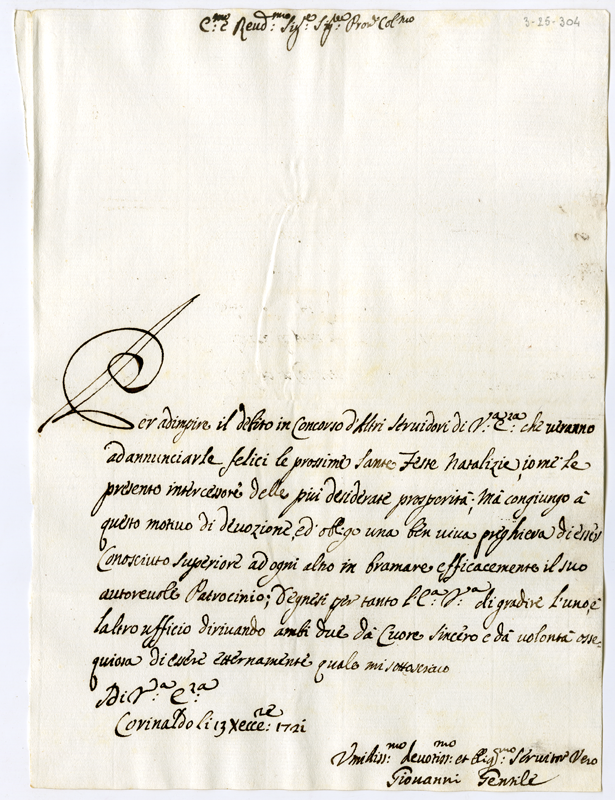 E.mo e Reud.mo Sig.e Sig.e Pron Col.mo
3-25-304
Per adimpire il debito in Concorso d'Altri Seruidori di V.a E.za che ueranno
ad annunciarle felici le prossime Sante Feste Natalizie, io me le
presento intercessore delle più desiderate prosperità; Mà congiungo à
questo motivo di devozione, ed obligo una ben viva preghiera di esser
Conosciuto superiore ad ogni altro in bramare efficacemente il suo
autorevole Patrocinio; Degnisi per tanto l'E.a V.a di gradire l'uno, e
l'altro ufficio dirivando ambi due dà Cuore sincero e dà volontà osse-
quiosa di essere eternamente quale mi sottoscrivo
Di V.a E.za
Corinaldo li 13 Xecce.re 1721
Vmiliss.mo devotiss.mo et Oblig.mo Servitor Vero
Giovanni Gentile